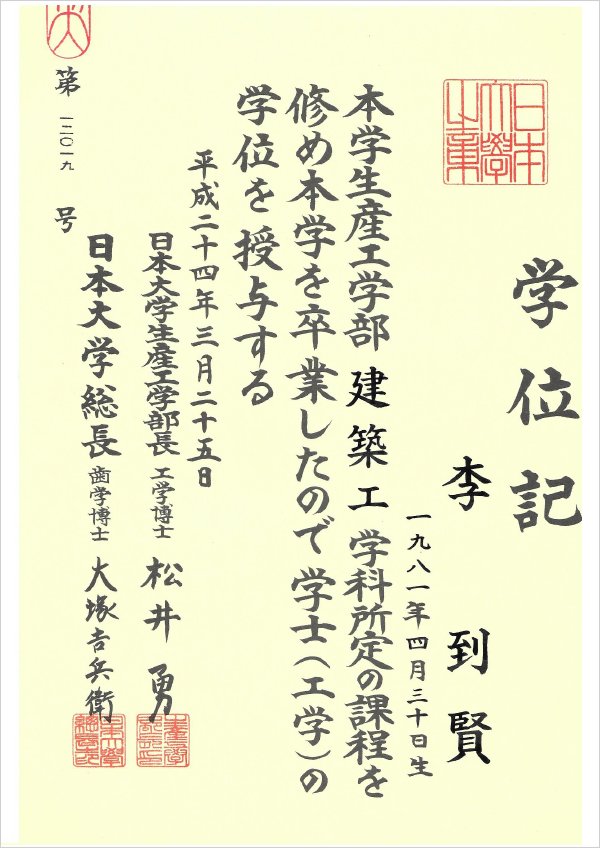 学位記
日本大學之章
李到賢
一九八一年四月三十日生
本学生産工学部建築工学科所定の課程を
修め本学を卒業したので学士(工学)の
学位を授与する
平成二十四年三月二十五日
日本大学生産工学部長 工学博士 松井勇
日本大学総長 歯学博士 大塚吉兵衛
第一二〇一九号